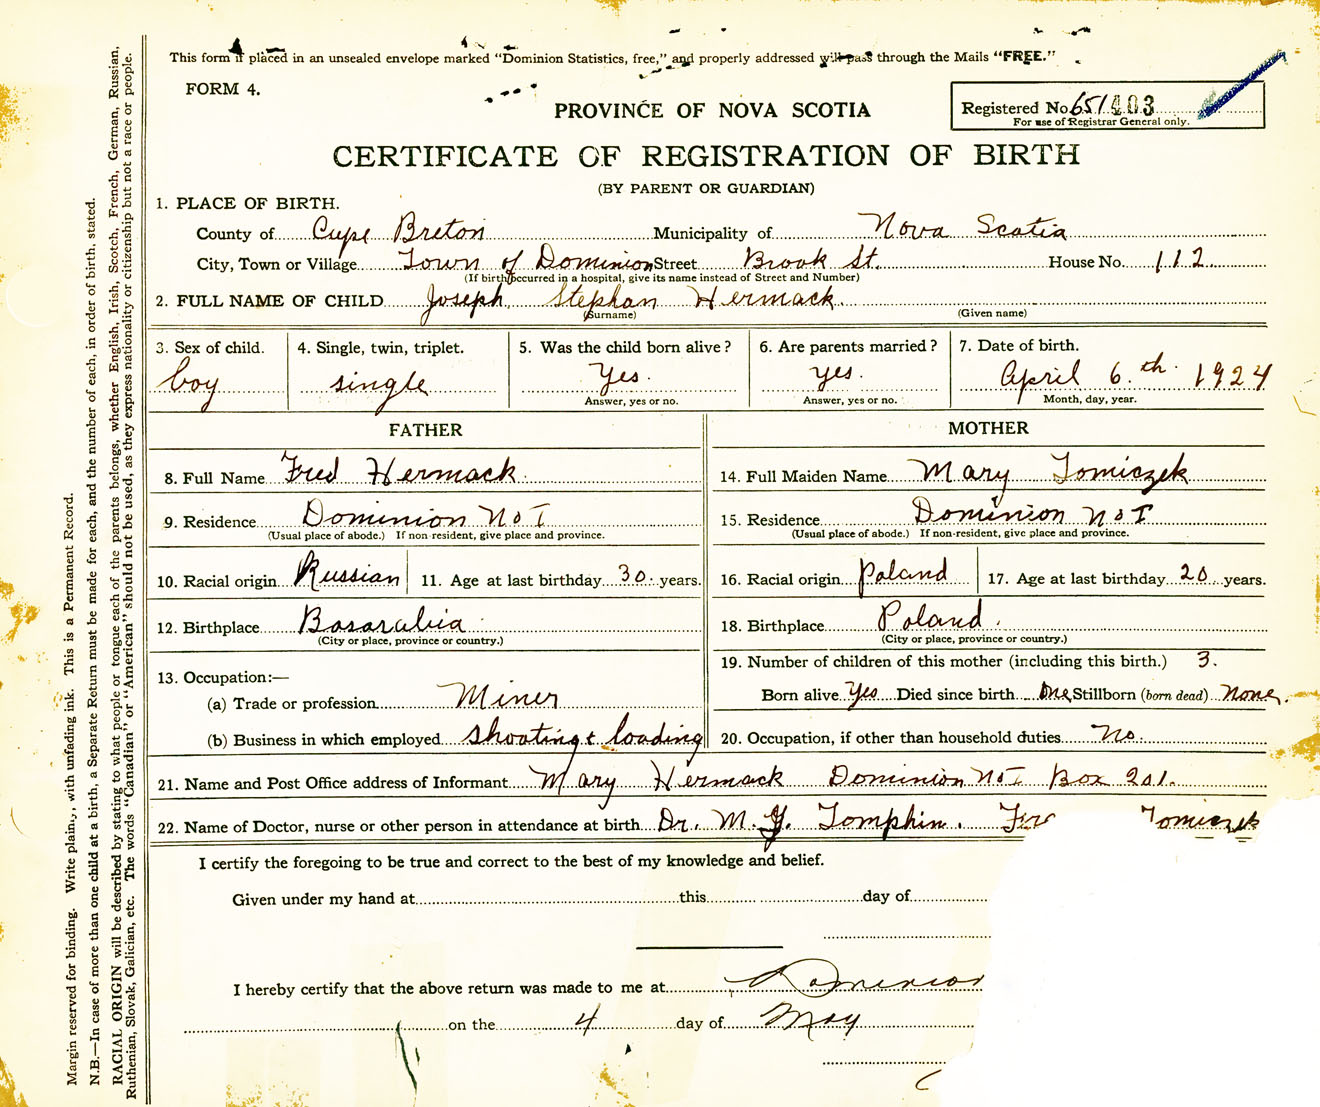 This form if placed in an unsealed envelope marked "Dominion Statistics, free," and properly addressed will pass through the Mails "FREE."
FORM 4.
PROVINCE OF NOVA SCOTIA
Registered No. 651403
For use of Registrar General only.
CERTIFICATE OF REGISTRATION OF BIRTH
(BY PARENT OR GUARDIAN)
1. PLACE OF BIRTH.
County of Cape Breton Municipality of Nova Scotia
City, Town or Village Town of Dominion Street Brook St. House No. 112.
(If birth occurred in a hospital, give its name instead of Street and Number)
2. FULL NAME OF CHILD Joseph Stephan Hermack.
(Surname) (Given name)
3. Sex of child. 4. Single, twin, triplet. 5. Was the child born alive? 6. Are parents married? 7. Date of birth.
boy single Yes. yes. April 6.th. 1924
Answer, yes or no. Answer, yes or no. Month, day, year.
FATHER MOTHER
8. Full Name Fred Hermack. 14. Full Maiden Name Mary Tomiczek
9. Residence Dominion No 1 15. Residence Dominion No 1
(Usual place of abode.) If non-resident, give place and province. (Usual place of abode.) If non-resident, give place and province.
10. Racial origin Russian 11. Age at last birthday 30. years. 16. Racial origin Poland 17. Age at last birthday 20 years.
12. Birthplace Basarabia 18. Birthplace Poland.
(City or place, province or country.) (City or place, province or country.)
13. Occupation:— 19. Number of children of this mother (including this birth.) 3.
(a) Trade or profession Miner Born alive Yes Died since birth One Stillborn (born dead) None.
(b) Business in which employed shooting & loading 20. Occupation, if other than household duties No.
21. Name and Post Office address of Informant Mary Hermack Dominion No 1 Box 201.
22. Name of Doctor, nurse or other person in attendance at birth Dr. M. G. Tompkin. Tomiczek
I certify the foregoing to be true and correct to the best of my knowledge and belief.
Given under my hand at this day of
I hereby certify that the above return was made to me at Dominion
on the 4 day of May
Margin reserved for binding. Write plainly, with unfading ink. This is a Permanent Record.
N.B.—In case of more than one child at a birth, a Separate Return must be made for each, and the number of each, in order of birth, stated.
RACIAL ORIGIN will be described by stating to what people or tongue each of the parents belongs, whether English, Irish, Scotch, French, German, Russian,
Ruthenian, Slovak, Galician, etc. The words "Canadian" or "American" should not be used, as they express nationality or citizenship but not a race or people.